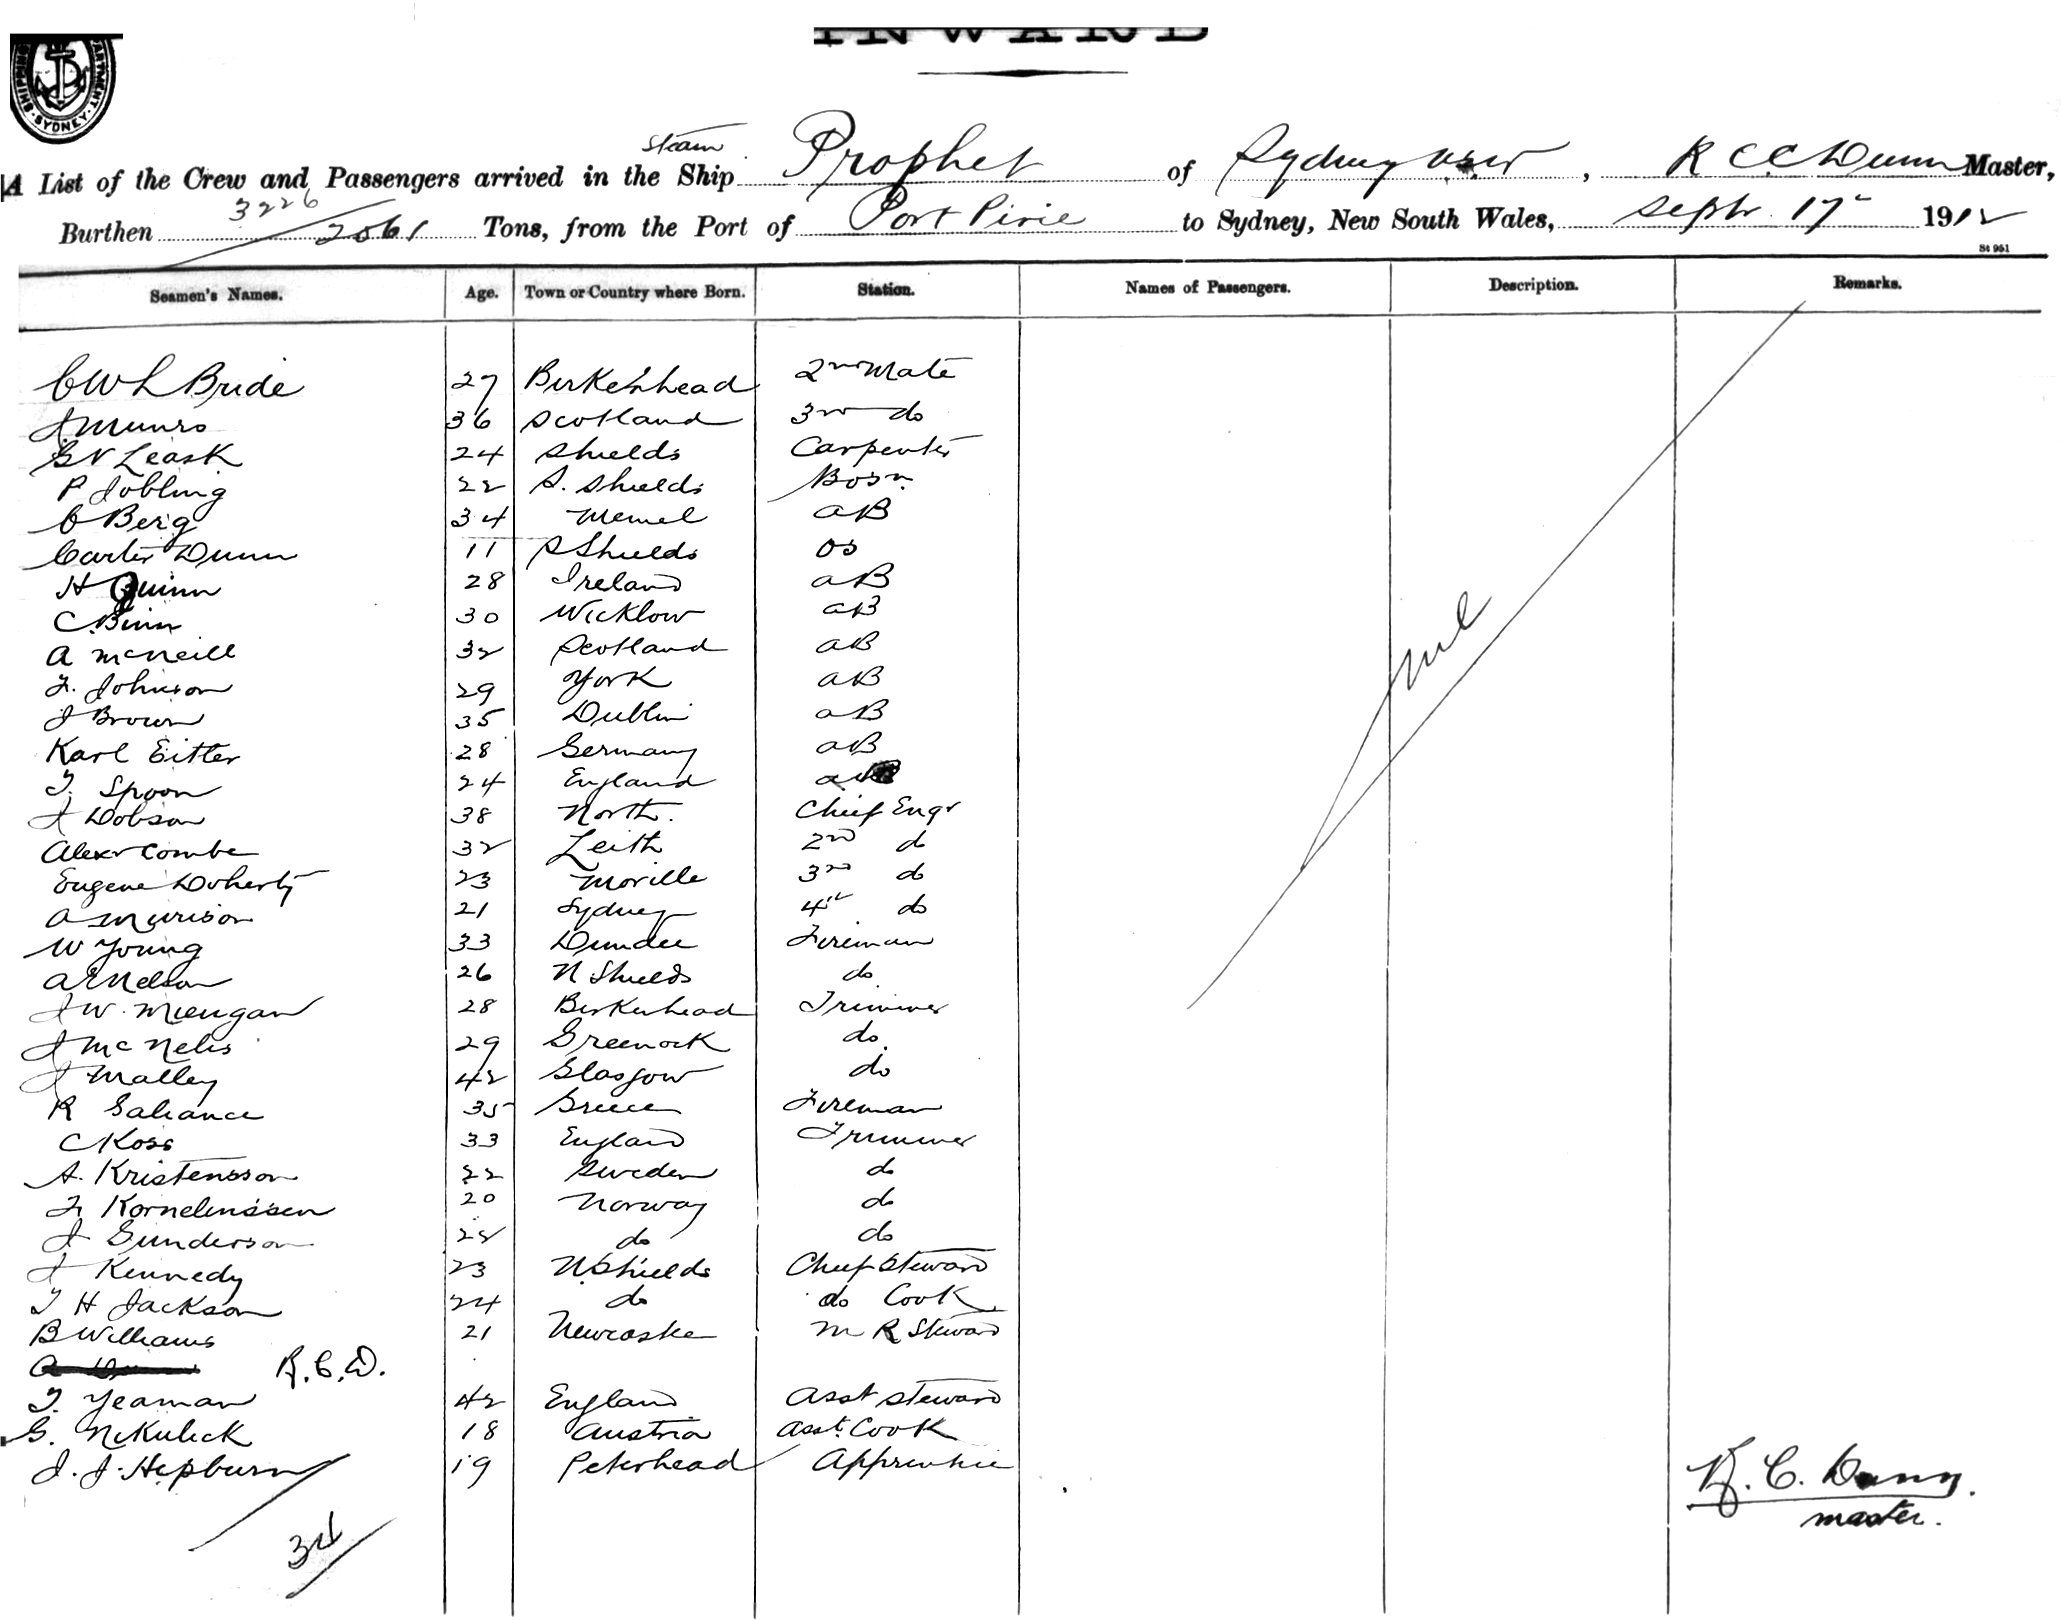 INWARD
SHIPPING DEPARTMENT SYDNEY
steam
A List of the Crew and Passengers arrived in the Ship Prophet of Sydney NSW, R C C Dunn Master,
Burthen 3226 / 2061 Tons, from the Port of Port Pirie to Sydney, New South Wales, Septr. 17th 1912
St 951
Seamen's Names. Age. Town or Country where Born. Station. Names of Passengers. Description. Remarks.
C W L Bride 27 Birkenhead 2nd Mate
J Munro 36 Scotland 3rd do
G N Leask 24 Shields Carpenter
P Jobling 22 S. Shields Bosn
C Berg 34 Memel AB
Carter Dunn 11 S Shields OS
H Quinn 28 Ireland AB
C. Binn 30 Wicklow AB
A McNeill 32 Scotland AB
F. Johnson 29 York AB
J Brown 35 Dublin AB
Karl Eitter 28 Germany AB
T. Spoon 24 England AB
J Dobson 38 North. Chief Engr
Alexr Combe 32 Leith 2nd do
Eugene Doherty 23 Moville 3rd do
A Murison 21 Sydney 4th do
W Young 33 Dundee Fireman
A E Nelson 26 N Shields do
J W. Miengan 28 Birkenhead Trimmer
J McNelis 29 Greenock do.
J Malley 42 Glasgow do
R Galiance 35 Greece Fireman
C Koss 33 England Trimmer
A. Kristensson 22 Sweden do
F. Kornelinssen 20 Norway do
J Gunderson 22 do do
J Kennedy 23 N. Shields Chief Steward
T H Jackson 24 do do Cook
B Williams 21 Newcastle M R Steward
R.C.D.
T. Yeaman 42 England Asst Steward
G. Nekulick 18 Austria Asst. Cook
J. J. Hepburn 19 Peterhead Apprentice
Nil
34
R. C. Dunn.
master.